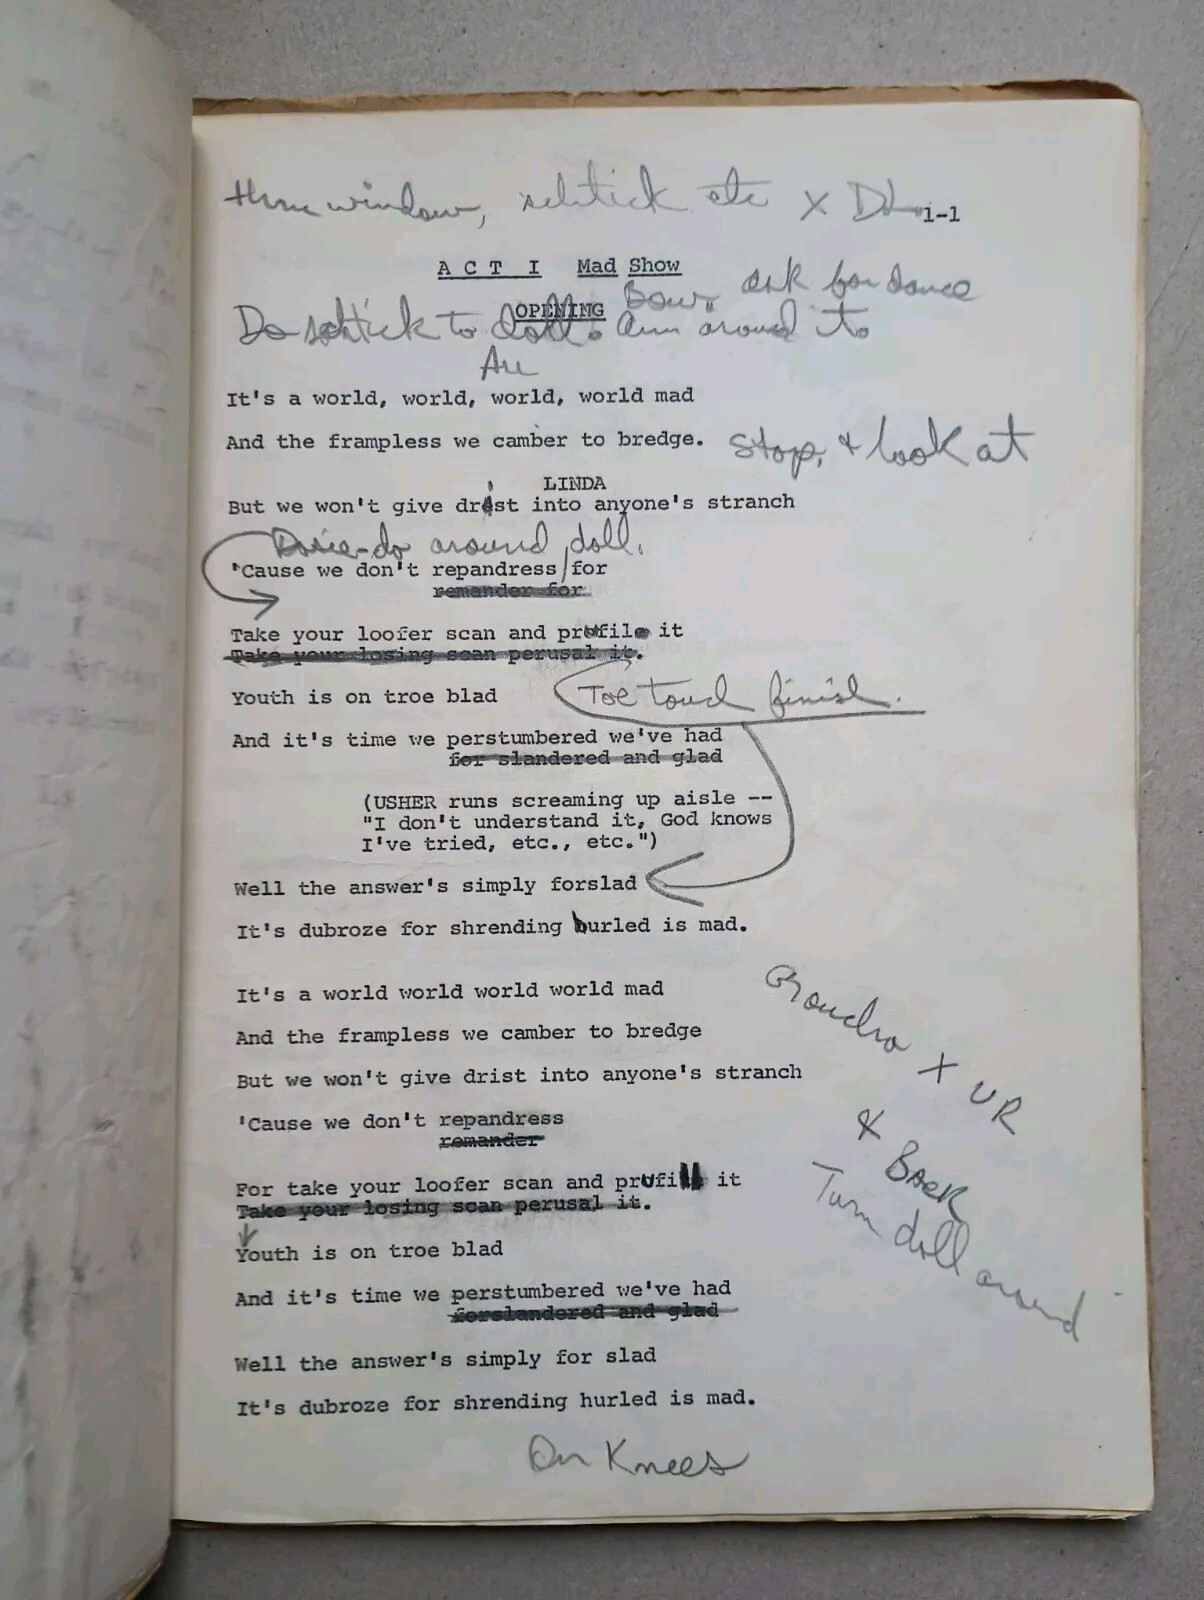 thru window, schtick etc X DL
1-1
ACT I Mad Show
Bow, ask for dance
OPENING
Do schtick to doll. arm around it.
All
It's a world, world, world, world mad
And the frampless we camber to bredge.
Stop, & look at
LINDA
But we won't give drist into anyone's stranch
Dosie-do around doll.
'Cause we don't repandress for
remander for
Take your loofer scan and prufile it
Take your losing scan perusal it.
Youth is on troe blad
Toe touch finish.
And it's time we perstumbered we've had
for slandered and glad
(USHER runs screaming up aisle --
"I don't understand it, God knows
I've tried, etc., etc.")
Well the answer's simply forslad
It's dubroze for shrending hurled is mad.
It's a world world world world mad
And the frampless we camber to bredge
But we won't give drist into anyone's stranch
'Cause we don't repandress
remander
Groucho X UR
& Back
Turn doll around
For take your loofer scan and prufill it
Take your losing scan perusal it.
Youth is on troe blad
And it's time we perstumbered we've had
forslandered and glad
Well the answer's simply for slad
It's dubroze for shrending hurled is mad.
On Knees